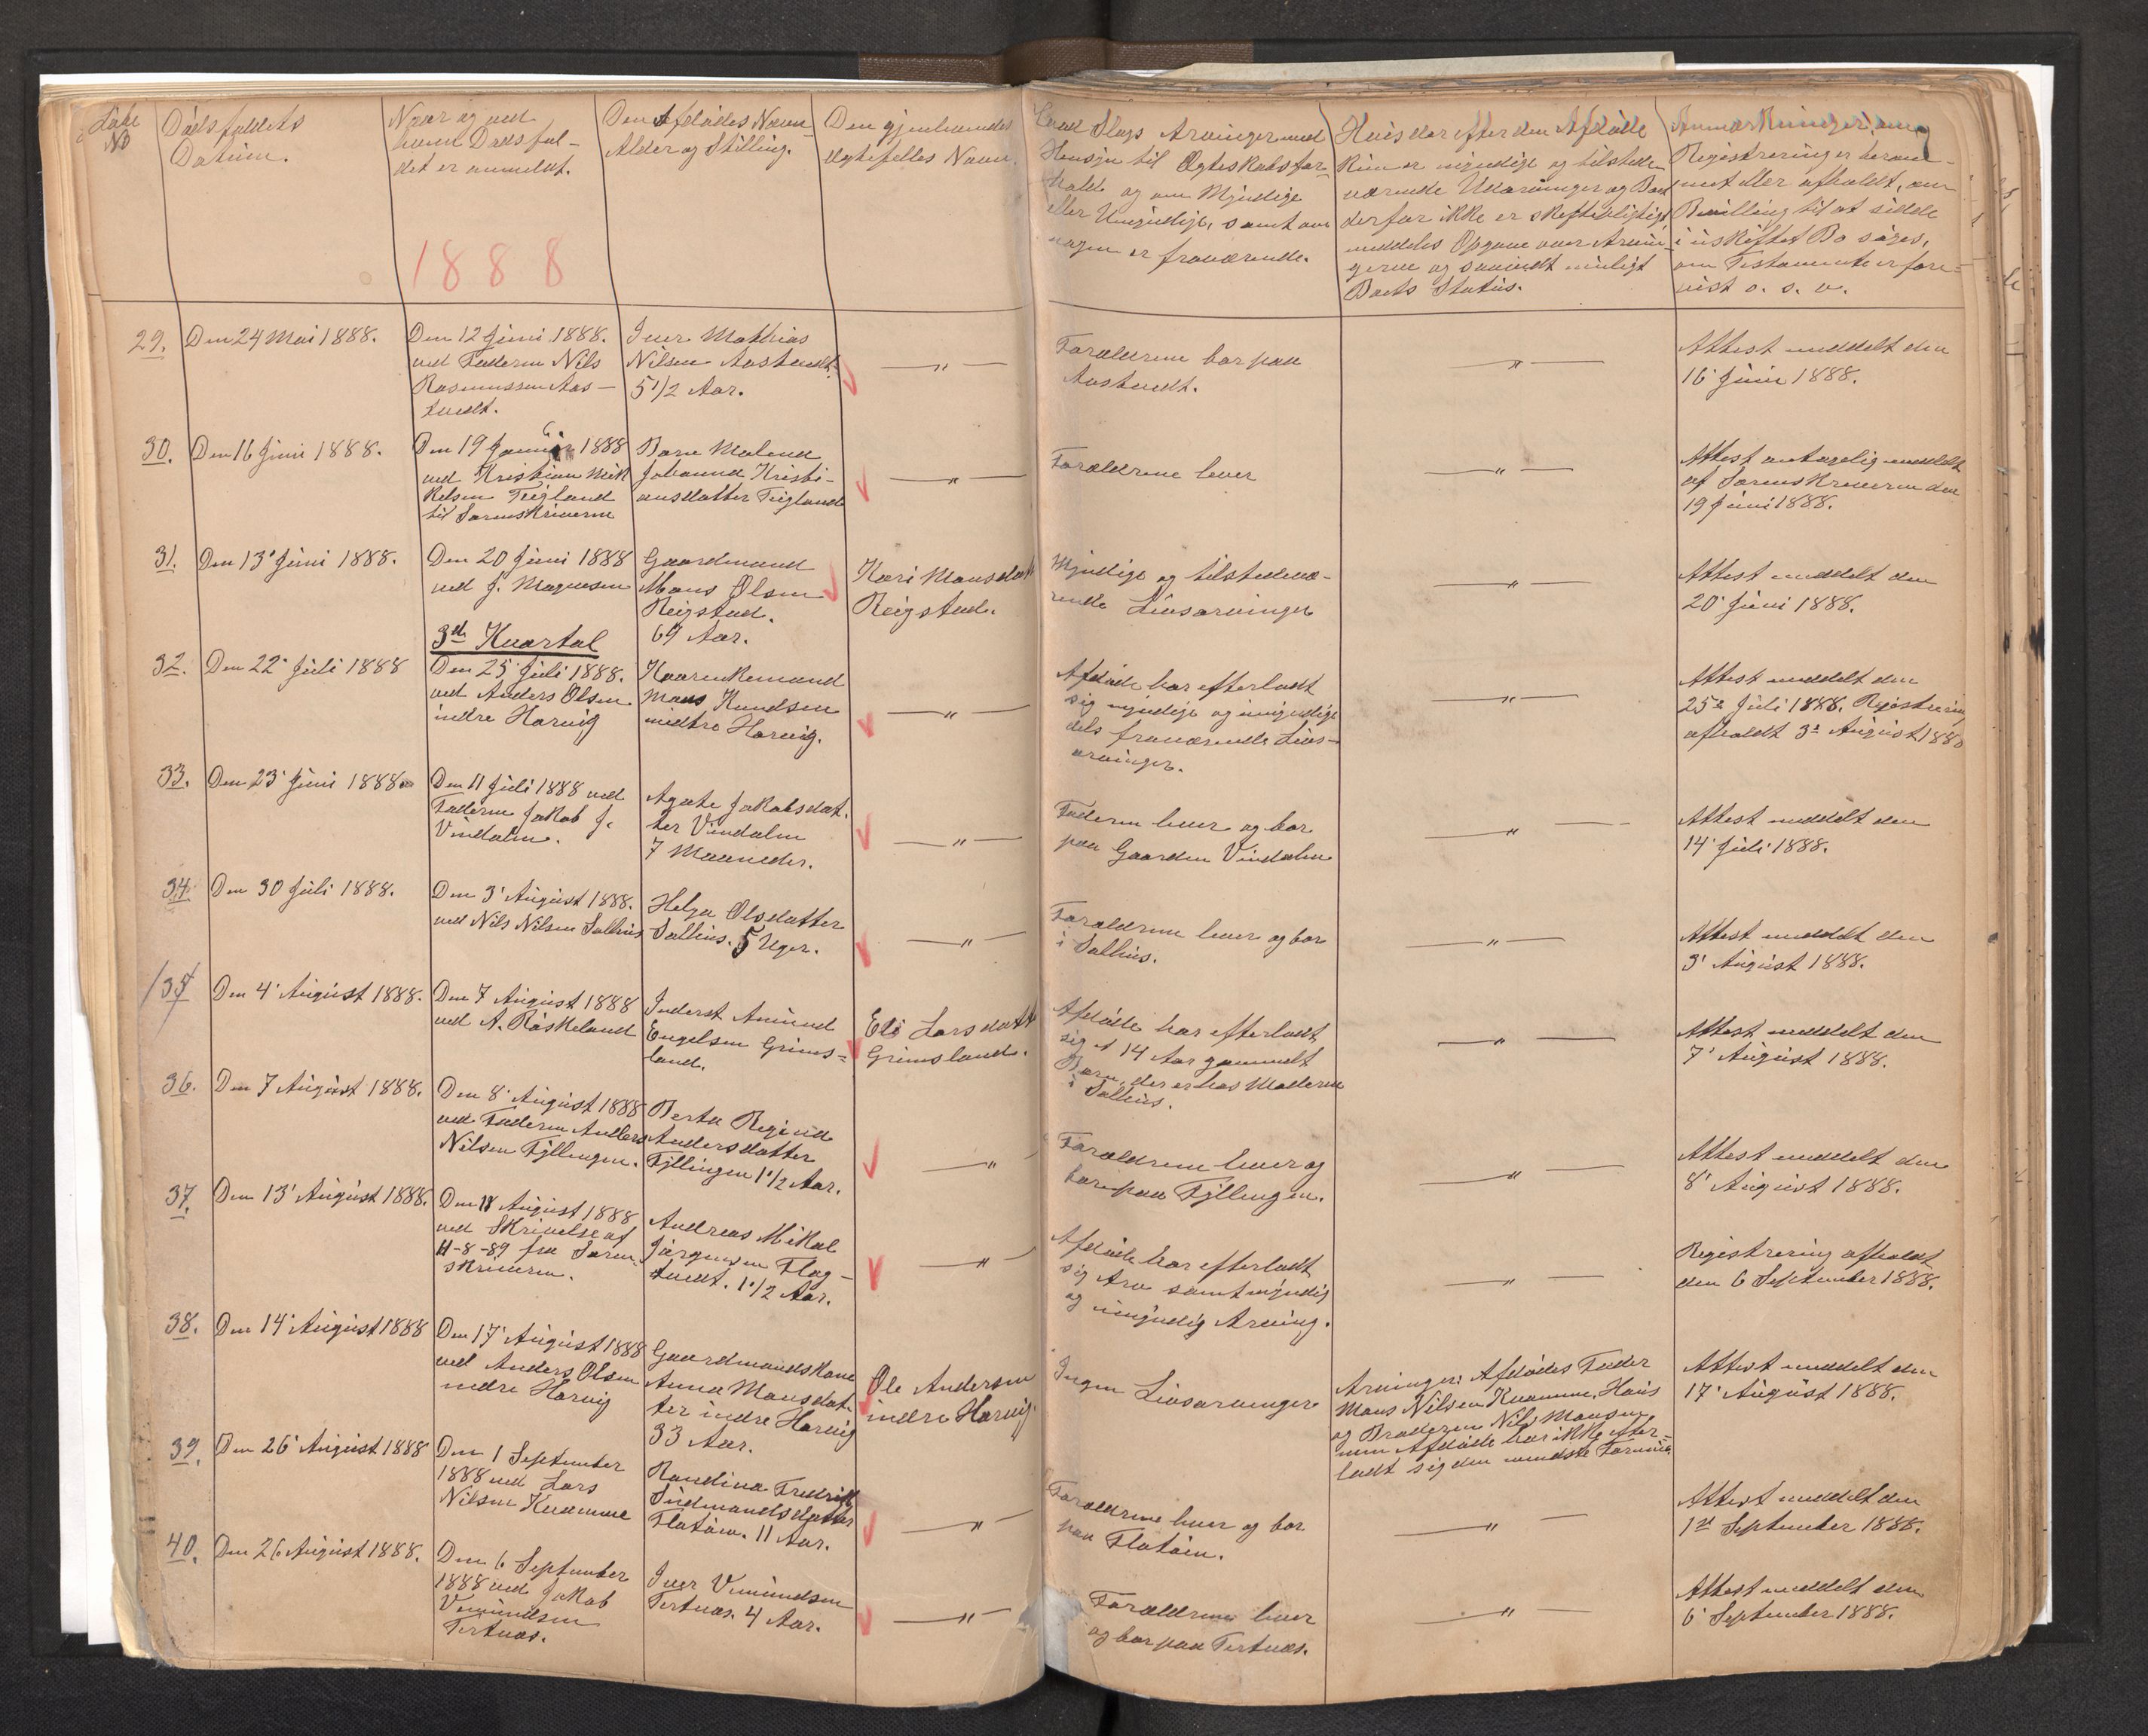 Løbe
No
Dødsfaldets
Datum.
Naar og ved
hvem Dødsfal-
det er anmeldt.
1888
Den Afdødes Navn
Alder og Stilling.
Den gjenlevendes
Ægtefelles Navn.
Hvad Slags Arvinger med
Hensyn til Ægteskabsfor-
hold og om Myndige
eller Umyndige, samt om
nogen er fraværende.
Hvis der efter den Afdøde
Kun er myndige og tilstede
værende Udarvinger og Boet
derfor ikke er skiftepligtigt,
meddeles Opgave over Arvin-
gerne og saavidt muligt
Boets Status.
Anmærkninger, om
Registrering er beram-
met eller afholdt, om
Bevilling til at sidde
i uskiftet Bo søges,
om Testamente er fore-
vist o. s. v.
29.
Den 24 Mai 1888.
Den 12 Juni 1888.
ved Faderen Nils
Rasmussen Aas-
tvedt.
Iver Mathias
Nilsen Aastvedt.
5 1/2 Aar.
— " —
Forældrene bor paa
Aastvedt.
— " —
Attest meddelt den
16' Juni 1888.
30.
Den 16 Juni 1888.
Den 19 Januar 1888
ved Kristian Mik
kelsen Teigland
til Sorenskriveren
Barn Malene
Johanna Kristi-
ansdatter Teigland
— " —
Forældrene lever
— " —
Attest antagelig meddelt
af Sorenskriveren den
19 Juni 1888.
31.
Den 13' Juni 1888.
Den 20 Juni 1888
ved J. Magnesen
Gaardmand
Mons Olsen
Reigstad.
69 Aar.
Kari Monsdatt
Reigstad.
Myndige og tilstedevæ-
rende Livsarvinger
— " —
Attest meddelt den
20' Juni 1888.
3die Kvartal
32.
Den 22' Juli 1888
Den 25' Juli 1888.
ved Anders Olsen
indre Horvig
Kaarenkemand
Mons Knudsen
midtre Horvig.
— " —
Afdøde har efterladt
sig myndige og umyndige
dels fraværende Livs-
arvinger.
— " —
Attest meddelt den
25de Juli 1888. Registrering
afholdt 3de August 1888
33.
Den 23' Juni 1888
Den 11 Juli 1888 ved
Faderen Jakob J.
Vindalen.
Agate Jakobsdat.
ter Vindalen
7 Maaneder.
— " —
Faderen lever og bor
paa Gaarden Vindalen
— " —
Attest meddelt den
14' Juli 1888.
34.
Den 30 Juli 1888.
Den 3' August 1888.
ved Nils Nilsen Salhus
Helga Olsdatter
Salhus. 5 Uger.
— " —
Forældrene lever og bor
i Salhus.
— " —
Attest meddelt den
3' August 1888.
35
Den 4' August 1888.
Den 7 August 1888
ved A. Røskeland
Inderst Amund
Engelsen Grims=
land.
Eli Larsdatt
Grimsland.
Afdøde har efterladt
sig et 14 Aar gammelt
Barn, der er hos Moderen
i Salhus.
— " —
Attest meddelt den
7' August 1888.
36.
Den 7 August 1888.
Den 8' August 1888
ved Faderen Anders
Nilsen Fyllingen.
Berta Regine
Andersdatter
Fyllingen 1 1/2 Aar.
— " —
Forældrene lever og
bor paa Fyllingen.
— " —
Attest meddelt den
8' August 1888.
37.
Den 13' August 1888.
Den 11 August 1888
ved Skrivelse af
11-8-89 fra Soren
skriveren.
Andreas Mikal
Jørgensen Flag-
tvedt. 1 1/2 Aar.
— " —
Afdøde har efterladt
sig Arv samt myndig
og umyndig Arving.
— " —
Registrering afholdt
den 6 September 1888.
38.
Den 14' August 1888
Den 17' August 1888
ved Anders Olsen
indre Horvig
Gaardmandskone
Anna Monsdat-
ter indre Horvig
33 Aar.
Ole Andersen
indre Horvig.
Ingen Livsarvinger
Arvinger: Afdødes Fader
Mons Nilsen Kvamme, Haus
og Broderen Nils Monsen
men Afdøde har ikke efter-
ladt sig den mindste Formue
Attest meddelt den
17' August 1888.
39.
Den 26' August 1888
Den 1 September
1888 ved Lars
Nilsen Kvamme
Randina Fredrik
Sudmandsdatter
Flatøen. 11 Aar.
— " —
Forældrene lever og bor
paa Flatøen.
— " —
Attest meddelt den
1ste September 1888.
40.
Den 26 August 1888.
Den 6 September
1888 ved Jakob
Vemundsen
Tertnæs.
Iver Vemundsen
Tertnæs. 4 Aar.
— " —
Forældrene lever
og bor paa Tertnæs.
— " —
Attest meddelt den
6' September 1888.